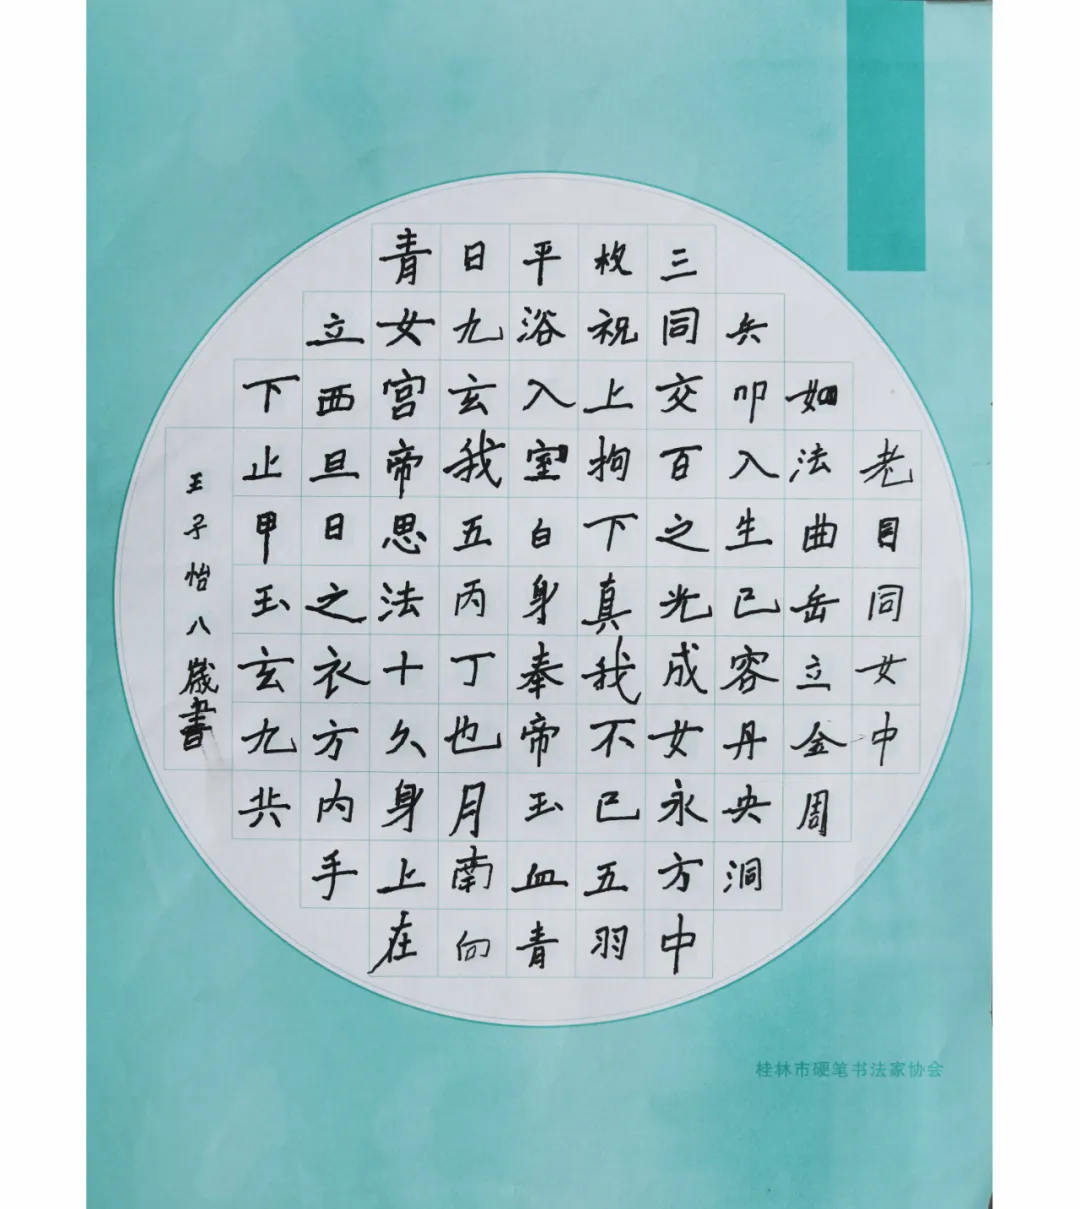 老目同女中
如法曲岳立金周
兵叩入生已容丹央洞
三同交百之光成女永方中
枚祝上拘下真我不已五羽
平浴入室白身奉帝玉血青
日九玄我五丙丁也月南向
青女宫帝思法十久身上在
立西旦日之衣方内手
下止甲玉玄九共
王子怡八歲書
桂林市硬笔书法家协会